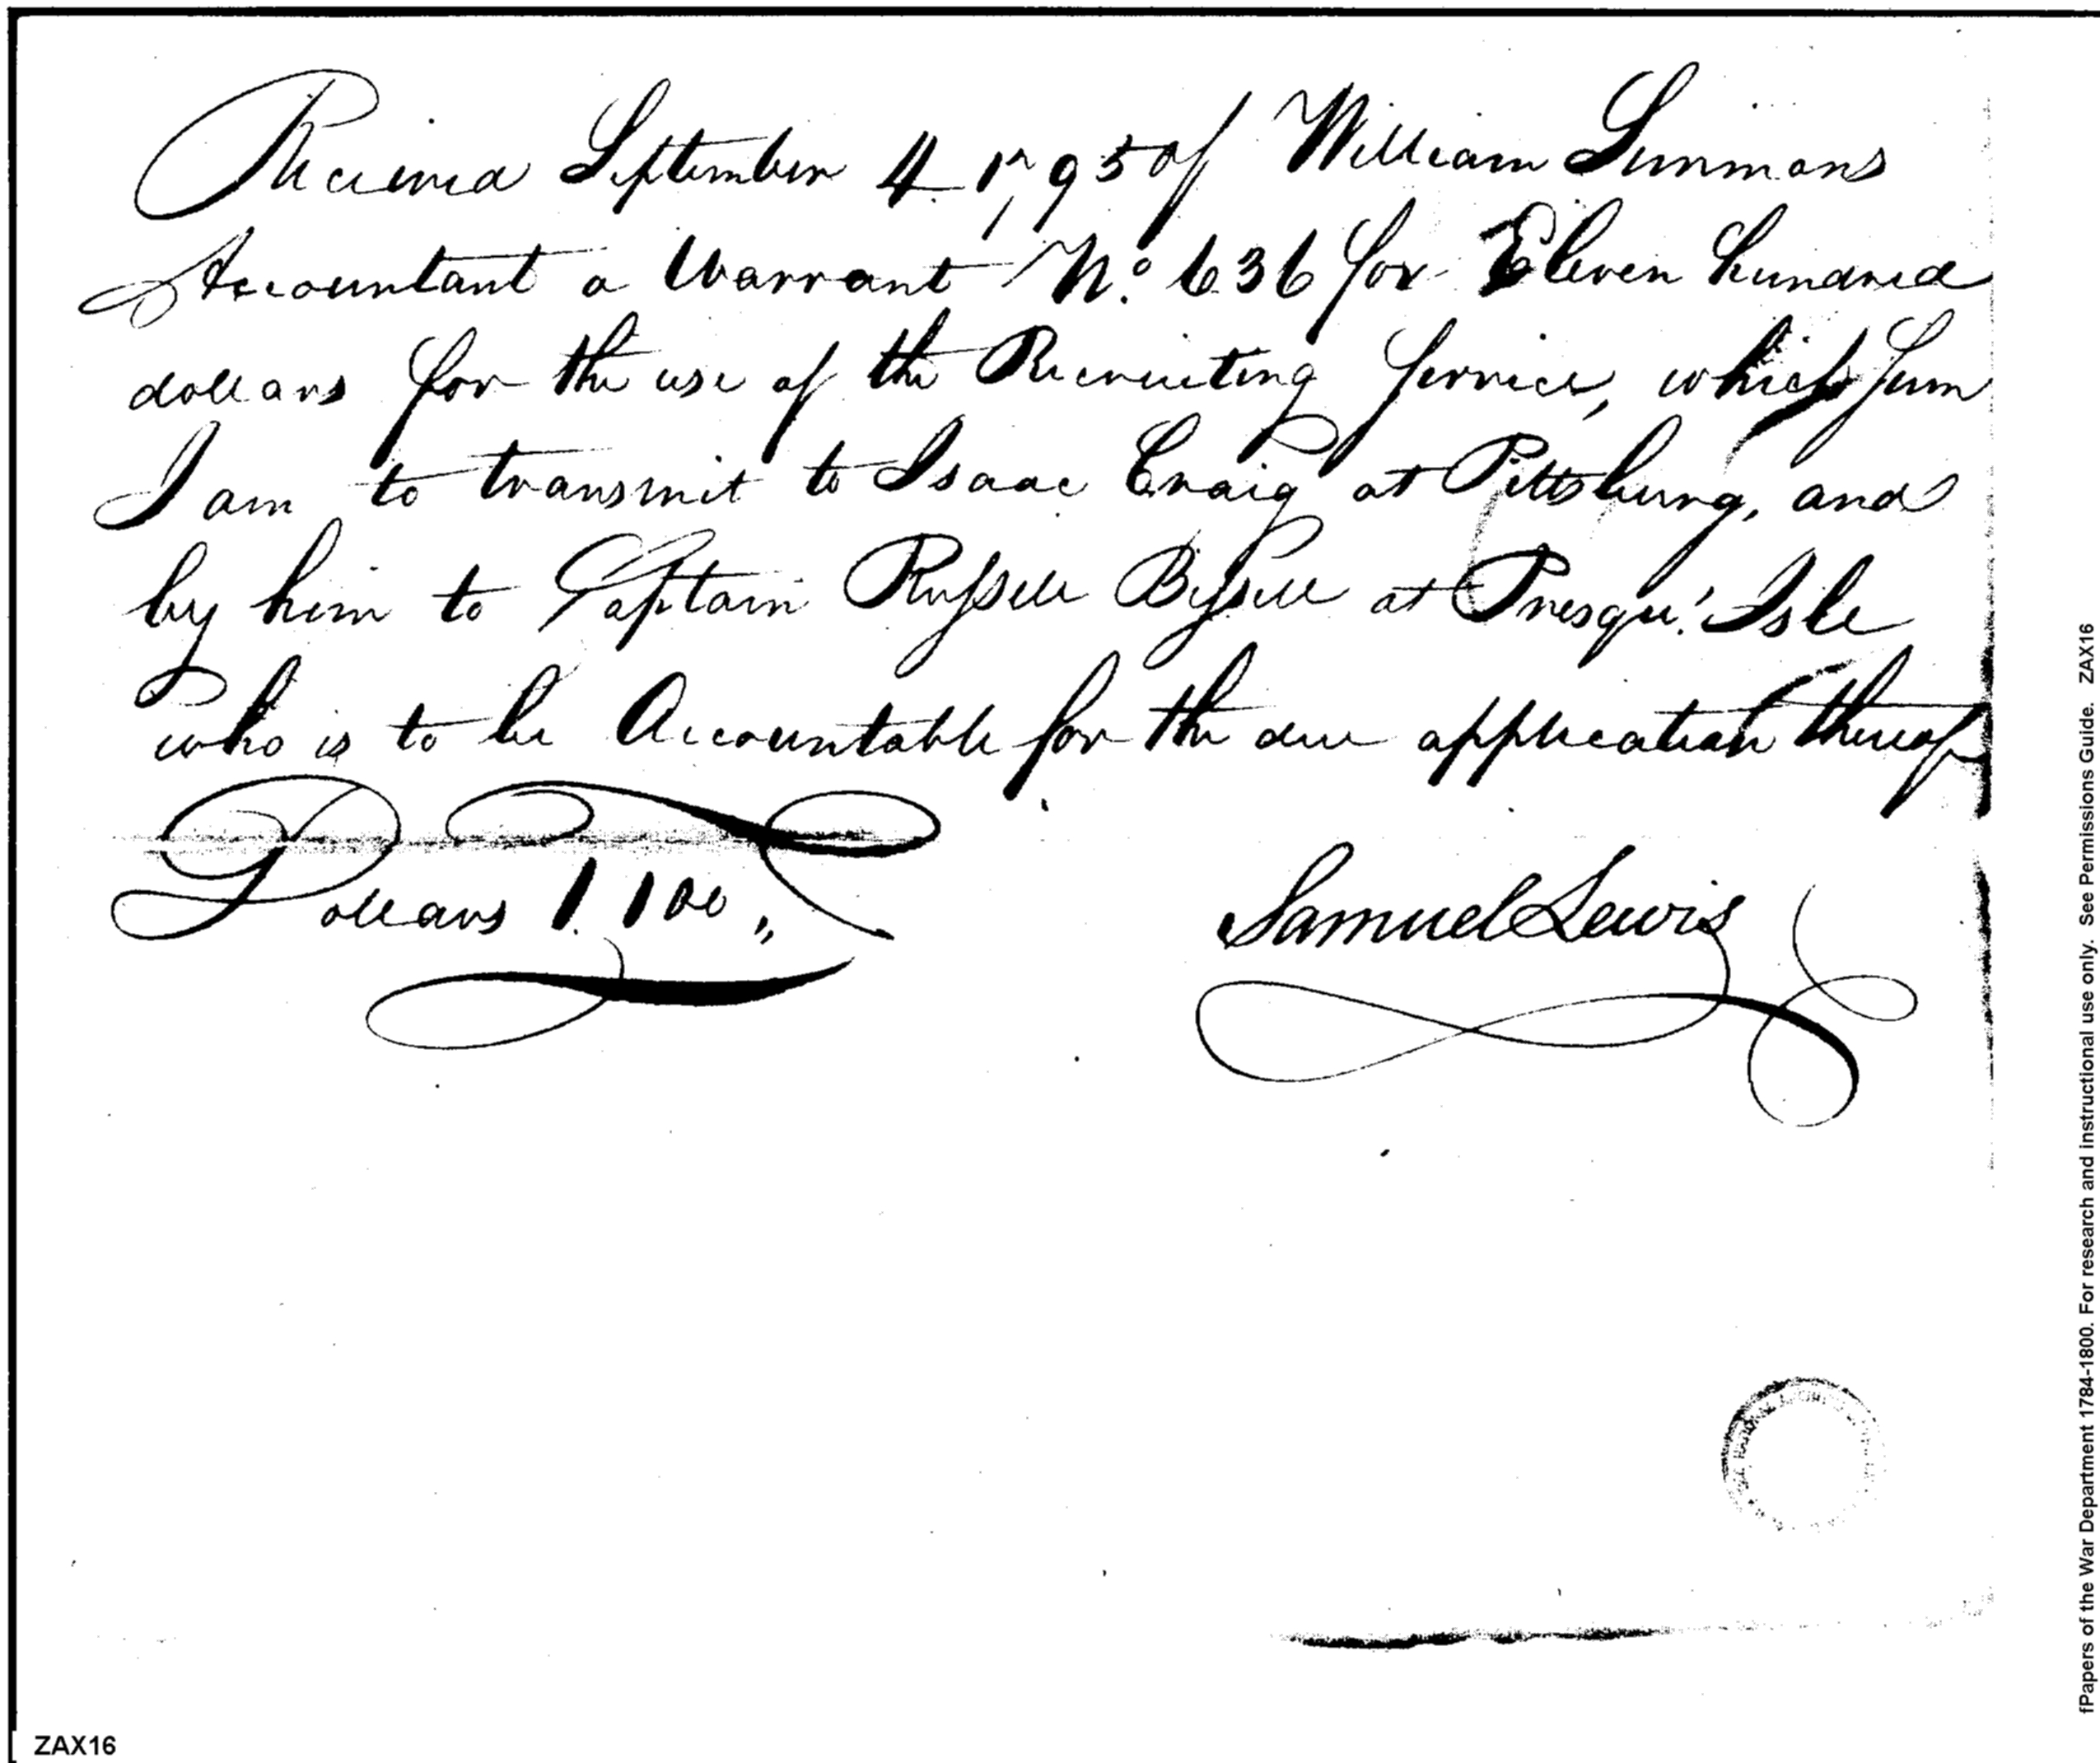 Received September 4. 1795 of William Simmons
Accountant a Warrant No. 636 for Eleven hundred
dollars for the use of the Recruiting Service, which Sum
I am to transmit to Isaac Craig at Pittsburg, and
by him to Captain Russell Bissell at Presqu' Isle
who is to be Accountable for the due application thereof
Dollars 1.100,,
Samuel Lewis
fPapers of the War Department 1784-1800. For research and instructional use only. See Permissions Guide. ZAX16
ZAX16